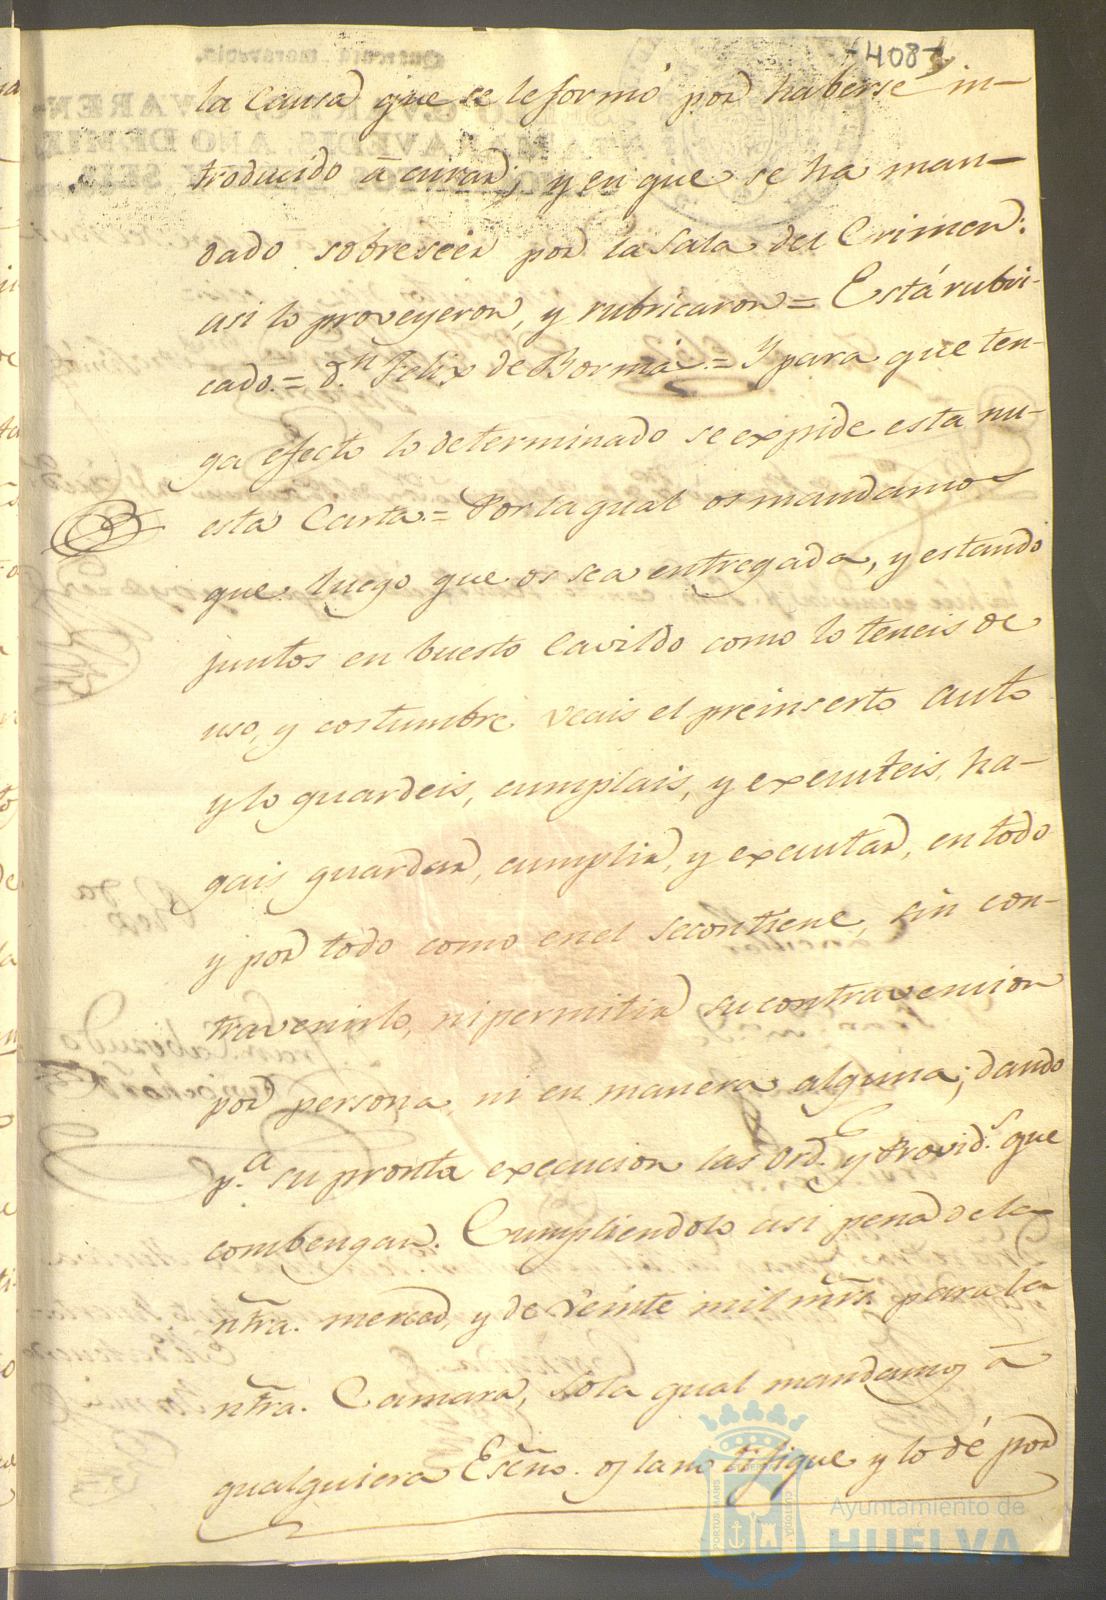 -408-
la Causa que se le formó por haberse in-
troducido á curar, y en que se ha man-
dado sobreseer por la Sala del Crimen:
asi lo proveyeron, y rubricaron = Está rubri-
cado = Dn. Felix de Bormás = Y para que ten-
ga efecto lo determinado se expide esta nu-
esta Carta = Por la qual os mandamos
que luego que os sea entregada, y estando
juntos en buesto Cavildo como lo teneis de
uso, y costumbre veais el preinserto auto
y lo guardeis, cumplais, y executeis, ha-
gais guardar, cumplir, y executar, en todo
y por todo como en el se contiene, sin con-
travenirlo, ni permitir su contravencion
por persona, ni en manera alguna; dando
pa. su pronta execucion las Ords. y Provids. que
combengan. Cumpliendolo asi pena de la
ntra. merced, y de veinte mil mrs. para la
ntra. Camara, so la qual mandamos á
qualquiera Esno. os la notifique y lo dé por
Ayuntamiento de
HUELVA